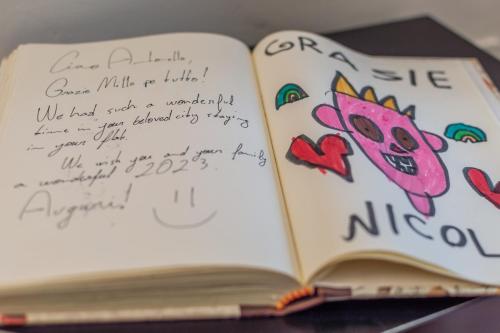 Ciao Antonella,
Grazie Mille pe tutto!
We had such a wonderful
time in your beloved city staying
in your flat.
We wish you and your family
a wonderful 2023.
Auguri!
GRASIE
NICOL